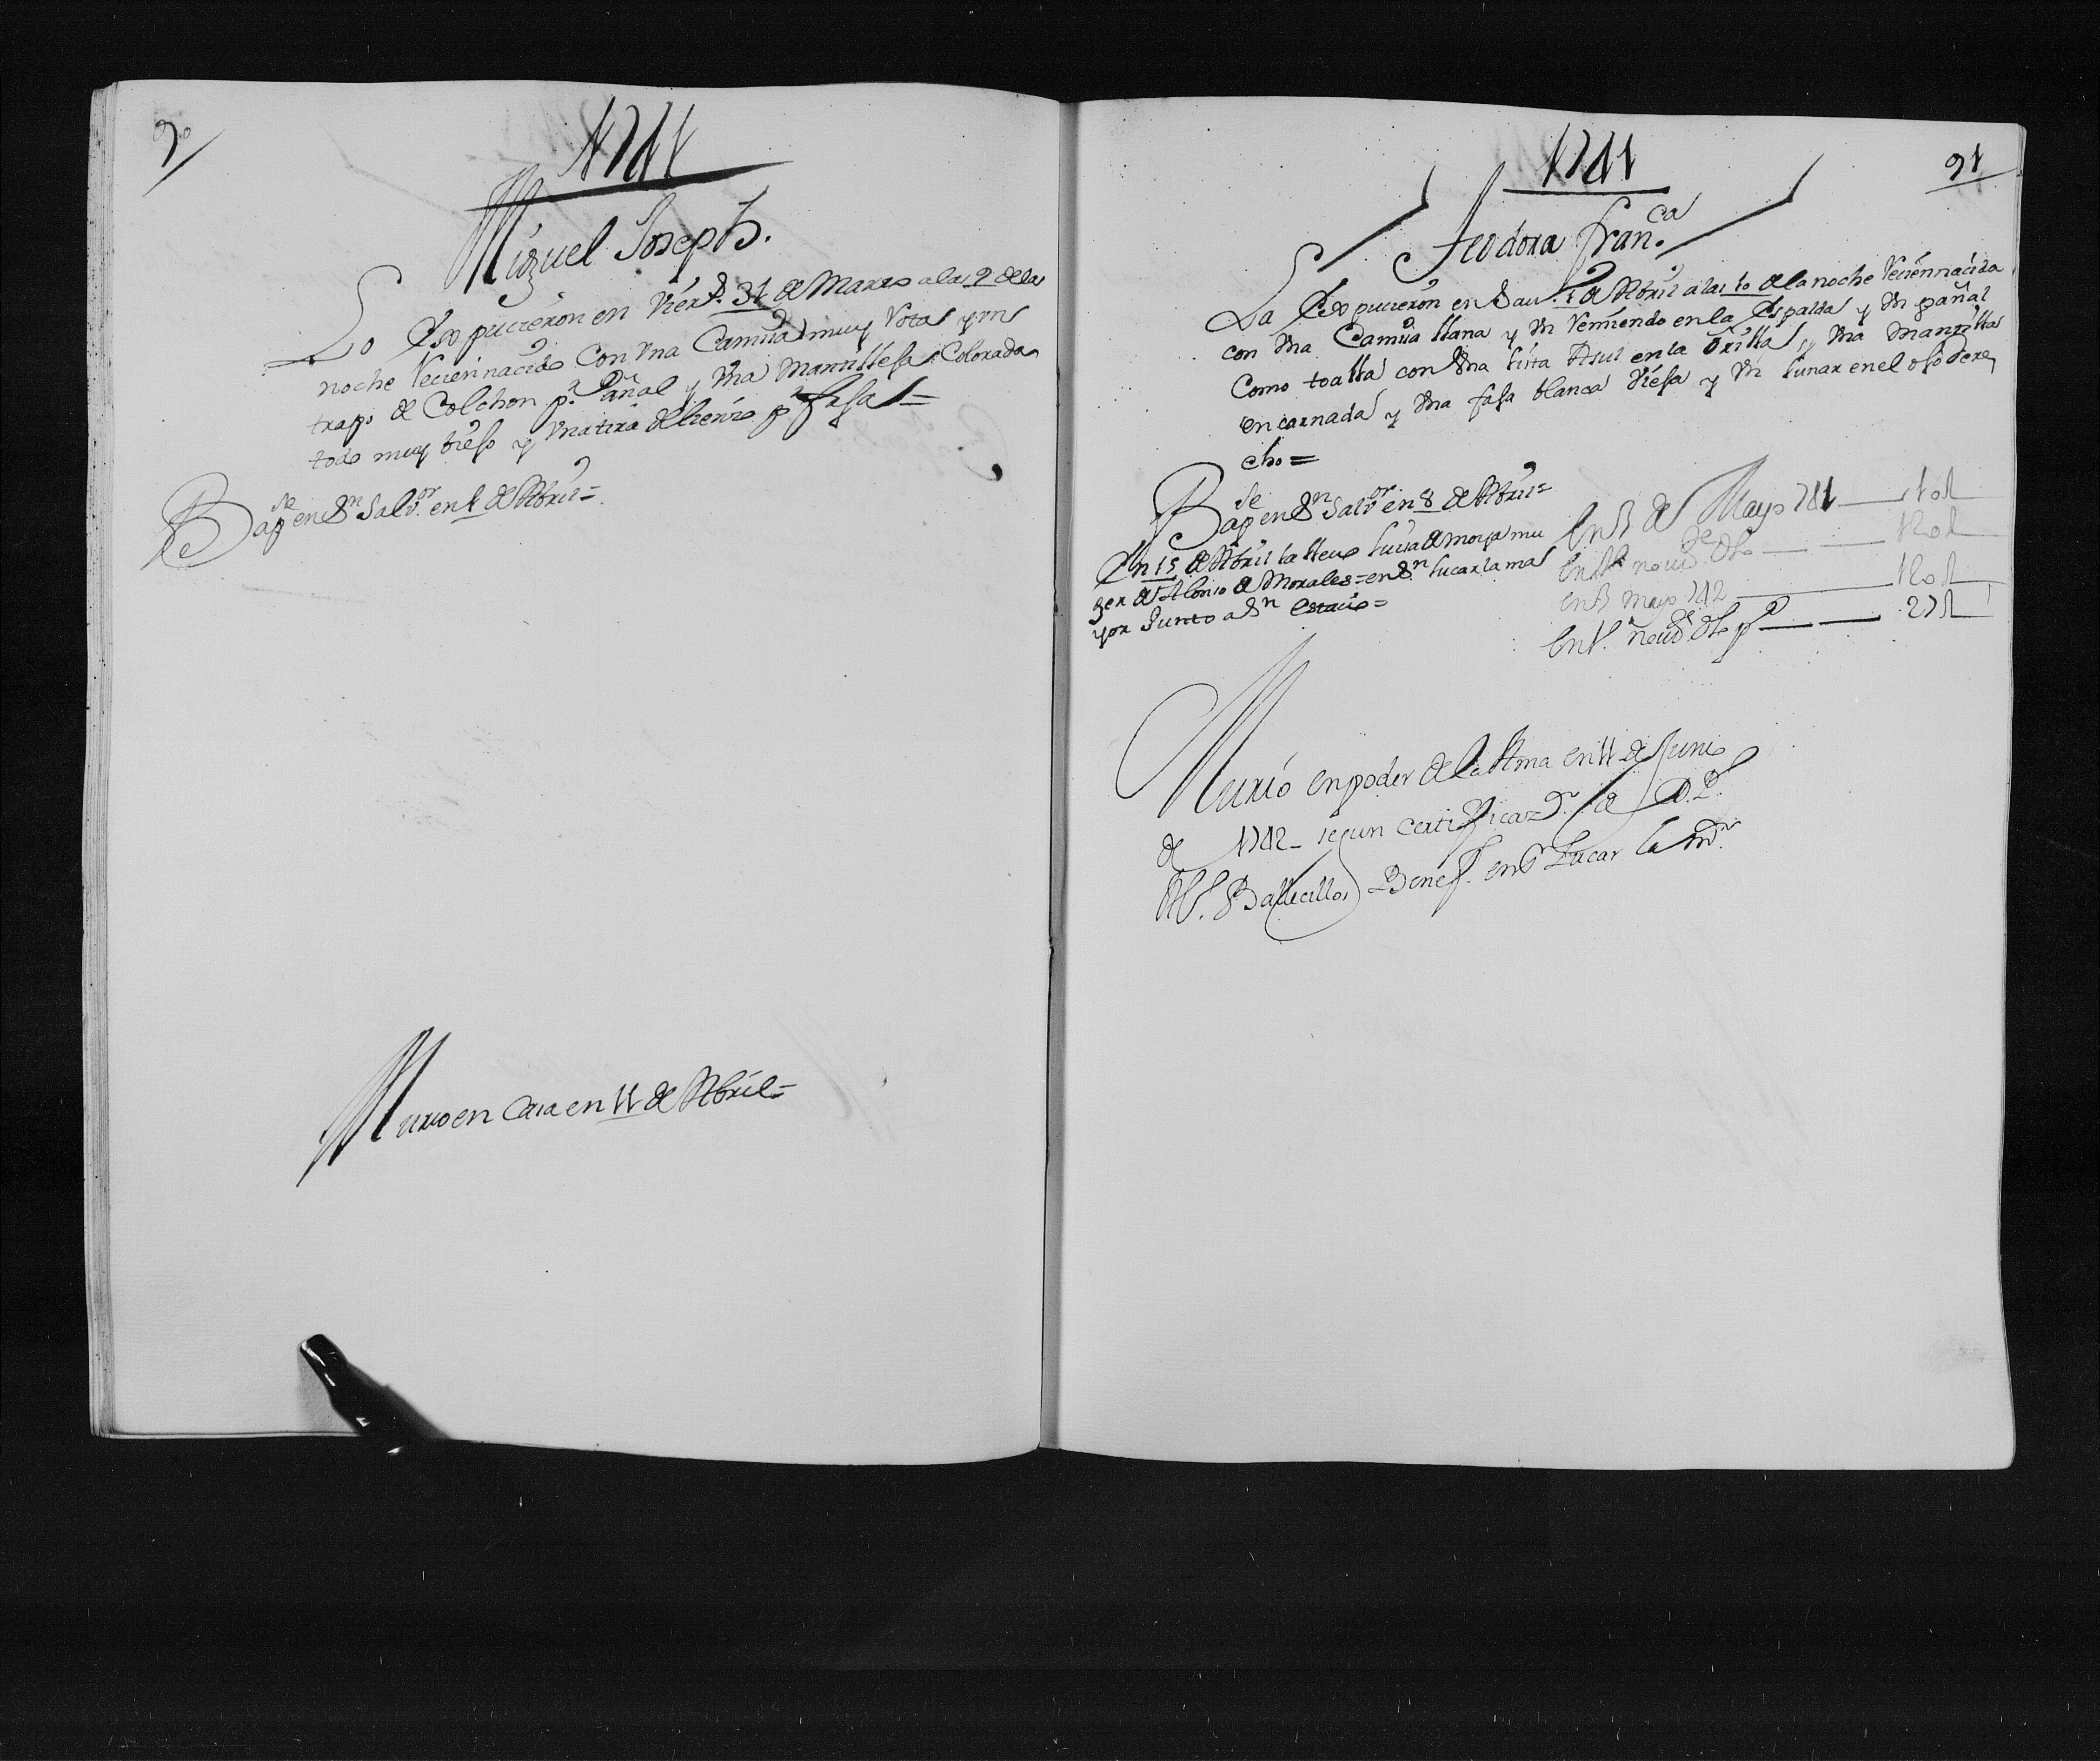 90
1741
Miguel Joseph.
Lo Expucieron en Vier.s 31 de Marzo a las 9 de la
noche Recien nacido Con Vna Camisa muy Rota y vn
trapo de Colchon p.a Pañal y Vna Mantilleja Colorada
todo muy biejo y Vna tira de lienzo p.a faja =
Bap.se en S.n Salv.or en 1 de Abril =
Murio en Casa en 11 de Abril =
1741
91
Teodora Fran.ca
La Expucieron en Sau.o 1 de Abril a las 10 de la noche Recien nacida
con Vna Camisa llana y Vn Remiendo en la Espalda y Vn pañal
Como toalla con Vna lista Asul en la Orilla y Vna Mantilla
encarnada y Vna faja blanca Vieja y Vn lunar en el ojo Dere
cho =
Bap.se en S.n Salv.or en 8 de Abril =
En 15 de Abril la lleuo Lucia de Moya mu
ger de Alonso de Morales = en S.n Lucar la ma
yor Junto a S.n Estacio =
de Mayo 741
nou.e
Mayo 742
nou.e
Murió en poder de la Ama en 11 de Junio
de 1742 - segun certificaz.n de D. P.o
Ballecillos Benef. en S.n Lucar la